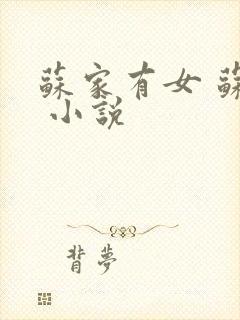 蘇家有女 蘇
小說
背夢